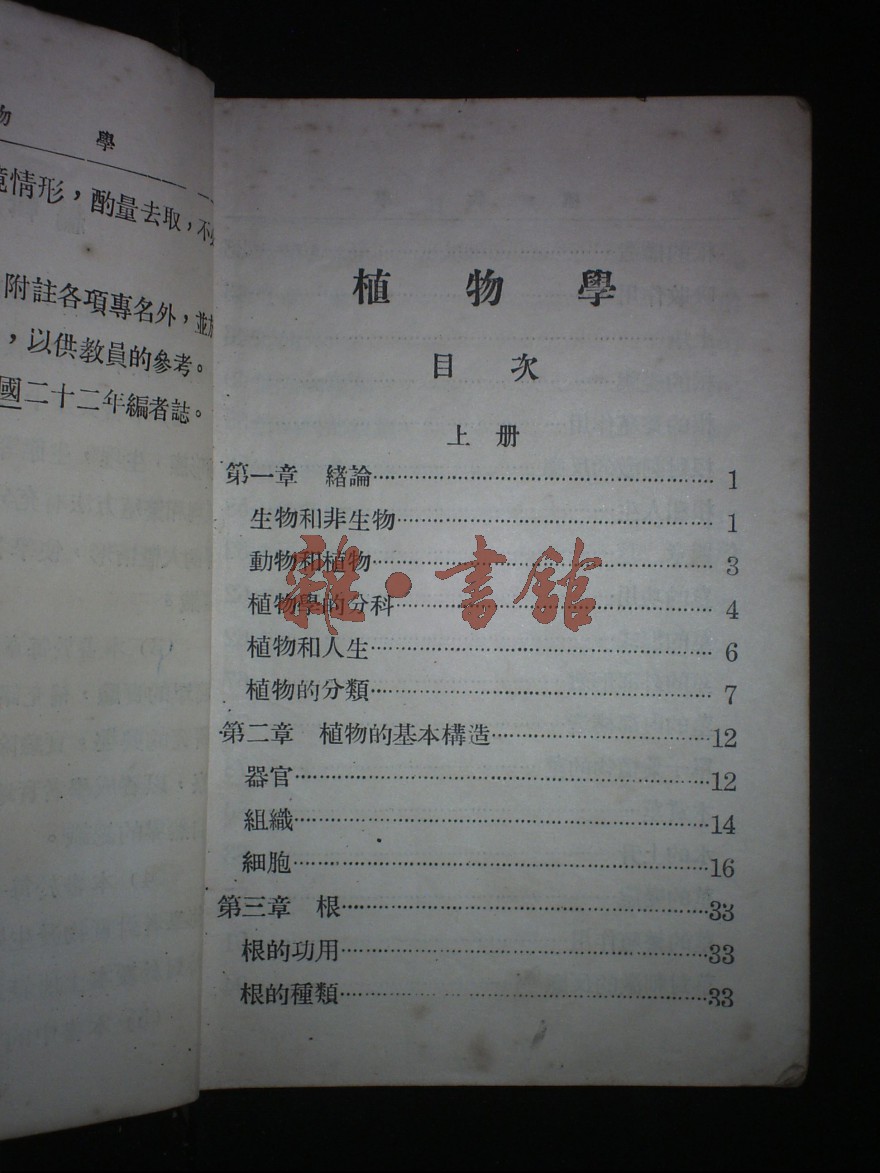 物學
情形，酌量去取，不
附註各項專名外，並
，以供教員的參考。
國二十二年編者誌。
植物學
目次
上册
第一章 緒論 1
生物和非生物 1
動物和植物 3
植物學的分科 4
植物和人生 6
植物的分類 7
第二章 植物的基本構造 12
器官 12
組織 14
細胞 16
第三章 根 33
根的功用 33
根的種類 33
雜·書館